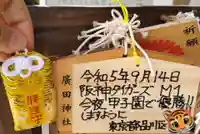 祈願
廣田神社
令和5年9月14日
阪神タイガース M1
今夜 甲子園で優勝!!
東京都品川区